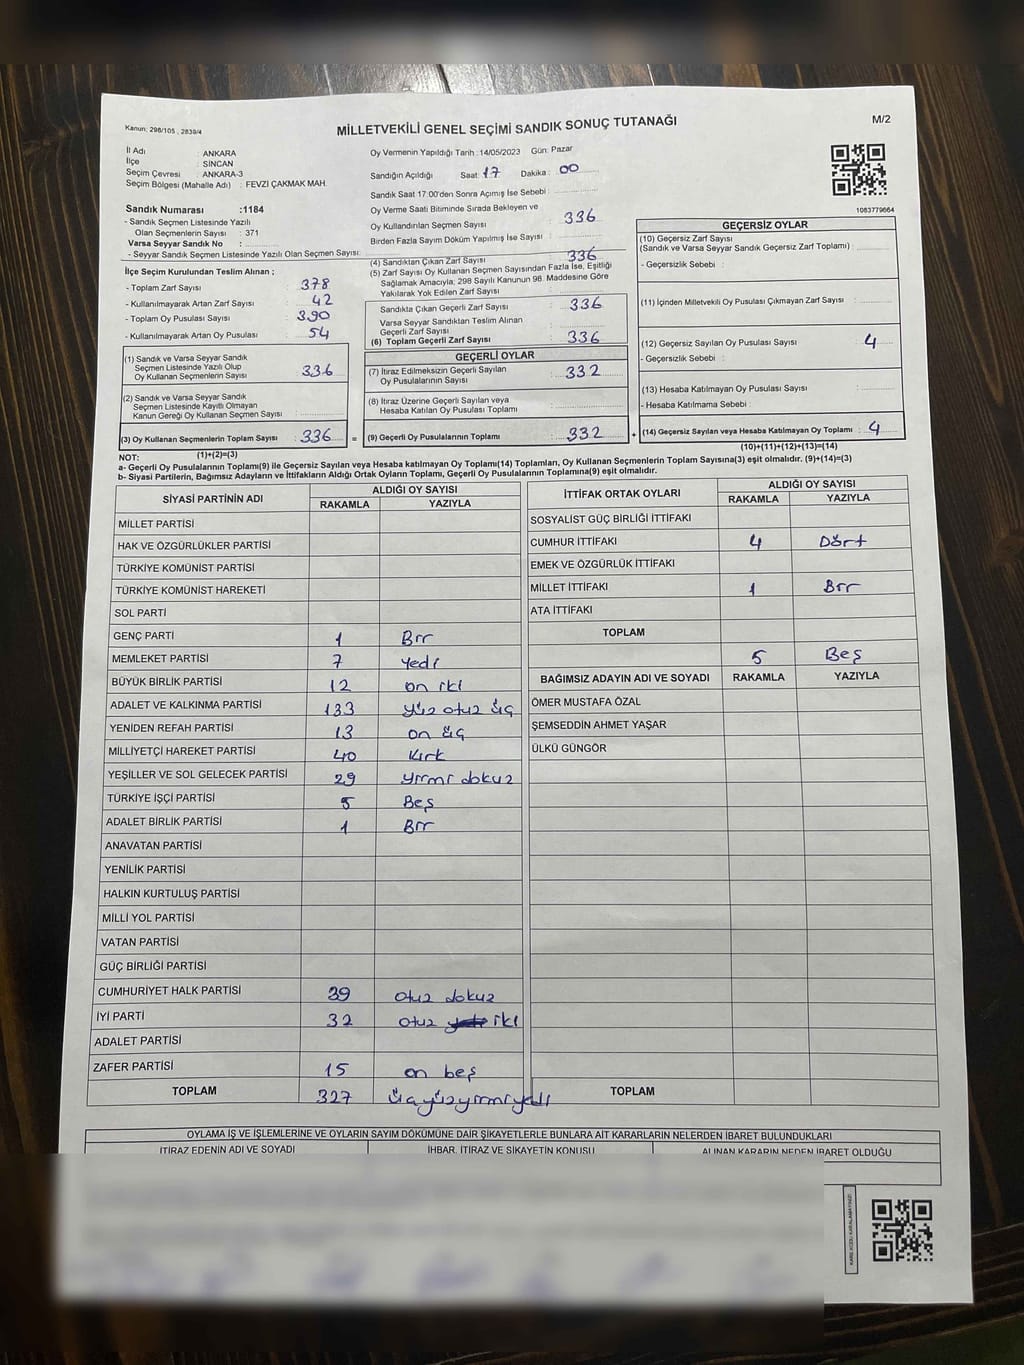 Kanun: 298/105 , 2839/4
MİLLETVEKİLİ GENEL SEÇİMİ SANDIK SONUÇ TUTANAĞI
M/2
İl Adı : ANKARA
İlçe : SİNCAN
Seçim Çevresi : ANKARA-3
Seçim Bölgesi (Mahalle Adı) : FEVZİ ÇAKMAK MAH.
Oy Vermenin Yapıldığı Tarih :14/05/2023 Gün: Pazar
Sandığın Açıldığı Saat :17 Dakika : 00
Sandık Saat 17:00'den Sonra Açımış İse Sebebi :
Oy Verme Saati Bitiminde Sırada Bekleyen ve
Oy Kullandırılan Seçmen Sayısı : 336
Birden Fazla Sayım Döküm Yapılmış İse Sayısı :
1083779664
Sandık Numarası :1184
- Sandık Seçmen Listesinde Yazılı
Olan Seçmenlerin Sayısı : 371
Varsa Seyyar Sandık No :
- Seyyar Sandık Seçmen Listesinde Yazılı Olan Seçmen Sayısı:
İlçe Seçim Kurulundan Teslim Alınan ;
- Toplam Zarf Sayısı : 378
- Kullanılmayarak Artan Zarf Sayısı : 42
- Toplam Oy Pusulası Sayısı : 390
- Kullanılmayarak Artan Oy Pusulası : 54
(1) Sandık ve Varsa Seyyar Sandık
Seçmen Listesinde Yazılı Olup
Oy Kullanan Seçmenlerin Sayısı : 336
(2) Sandık ve Varsa Seyyar Sandık
Seçmen Listesinde Kayıtlı Olmayan
Kanun Gereği Oy Kullanan Seçmen Sayısı :
(3) Oy Kullanan Seçmenlerin Toplam Sayısı : 336
(1)+(2)=(3)
(4) Sandıktan Çıkan Zarf Sayısı : 336
(5) Zarf Sayısı Oy Kullanan Seçmen Sayısından Fazla İse, Eşitliği
Sağlamak Amacıyla, 298 Sayılı Kanunun 98. Maddesine Göre
Yakılarak Yok Edilen Zarf Sayısı :
Sandıkta Çıkan Geçerli Zarf Sayısı : 336
Varsa Seyyar Sandıktan Teslim Alınan
Geçerli Zarf Sayısı :
(6) Toplam Geçerli Zarf Sayısı : 336
GEÇERLİ OYLAR
(7) İtiraz Edilmeksizin Geçerli Sayılan
Oy Pusulalarının Sayısı : 332
(8) İtiraz Üzerine Geçerli Sayılan veya
Hesaba Katılan Oy Pusulası Toplamı :
= (9) Geçerli Oy Pusulalarının Toplamı : 332
GEÇERSİZ OYLAR
(10) Geçersiz Zarf Sayısı
(Sandık ve Varsa Seyyar Sandık Geçersiz Zarf Toplamı) :
- Geçersizlik Sebebi :
(11) İçinden Milletvekili Oy Pusulası Çıkmayan Zarf Sayısı :
(12) Geçersiz Sayılan Oy Pusulası Sayısı : 4
- Geçersizlik Sebebi :
(13) Hesaba Katılmayan Oy Pusulası Sayısı :
- Hesaba Katılmama Sebebi :
+ (14) Geçersiz Sayılan veya Hesaba Katılmayan Oy Toplamı : 4
(10)+(11)+(12)+(13)=(14)
NOT:
a- Geçerli Oy Pusulalarının Toplamı(9) ile Geçersiz Sayılan veya Hesaba katılmayan Oy Toplamı(14) Toplamları, Oy Kullanan Seçmenlerin Toplam Sayısına(3) eşit olmalıdır. (9)+(14)=(3)
b- Siyasi Partilerin, Bağımsız Adayların ve İttifakların Aldığı Ortak Oyların Toplamı, Geçerli Oy Pusulalarının Toplamına(9) eşit olmalıdır.
SİYASİ PARTİNİN ADI ALDIĞI OY SAYISI
RAKAMLA YAZIYLA
MİLLET PARTİSİ
HAK VE ÖZGÜRLÜKLER PARTİSİ
TÜRKİYE KOMÜNİST PARTİSİ
TÜRKİYE KOMÜNİST HAREKETİ
SOL PARTİ
GENÇ PARTİ 1 Bir
MEMLEKET PARTİSİ 7 Yedi
BÜYÜK BİRLİK PARTİSİ 12 on iki
ADALET VE KALKINMA PARTİSİ 133 yüz otuz üç
YENİDEN REFAH PARTİSİ 13 on üç
MİLLİYETÇİ HAREKET PARTİSİ 40 Kırk
YEŞİLLER VE SOL GELECEK PARTİSİ 29 yirmi dokuz
TÜRKİYE İŞÇİ PARTİSİ 5 Beş
ADALET BİRLİK PARTİSİ 1 Bir
ANAVATAN PARTİSİ
YENİLİK PARTİSİ
HALKIN KURTULUŞ PARTİSİ
MİLLİ YOL PARTİSİ
VATAN PARTİSİ
GÜÇ BİRLİĞİ PARTİSİ
CUMHURİYET HALK PARTİSİ 39 otuz dokuz
İYİ PARTİ 32 otuz iki
ADALET PARTİSİ
ZAFER PARTİSİ 15 on beş
TOPLAM 327 üçyüzyirmiyedi
İTTİFAK ORTAK OYLARI ALDIĞI OY SAYISI
RAKAMLA YAZIYLA
SOSYALİST GÜÇ BİRLİĞİ İTTİFAKI
CUMHUR İTTİFAKI 4 Dört
EMEK VE ÖZGÜRLÜK İTTİFAKI
MİLLET İTTİFAKI 1 Bir
ATA İTTİFAKI
TOPLAM
5 Beş
BAĞIMSIZ ADAYIN ADI VE SOYADI RAKAMLA YAZIYLA
ÖMER MUSTAFA ÖZAL
ŞEMSEDDİN AHMET YAŞAR
ÜLKÜ GÜNGÖR
TOPLAM
OYLAMA İŞ VE İŞLEMLERİNE VE OYLARIN SAYIM DÖKÜMÜNE DAİR ŞİKAYETLERLE BUNLARA AİT KARARLARIN NELERDEN İBARET BULUNDUKLARI
İTİRAZ EDENİN ADI VE SOYADI İHBAR, İTİRAZ VE ŞİKAYETİN KONUSU ALINAN KARARIN NEDEN İBARET OLDUĞU